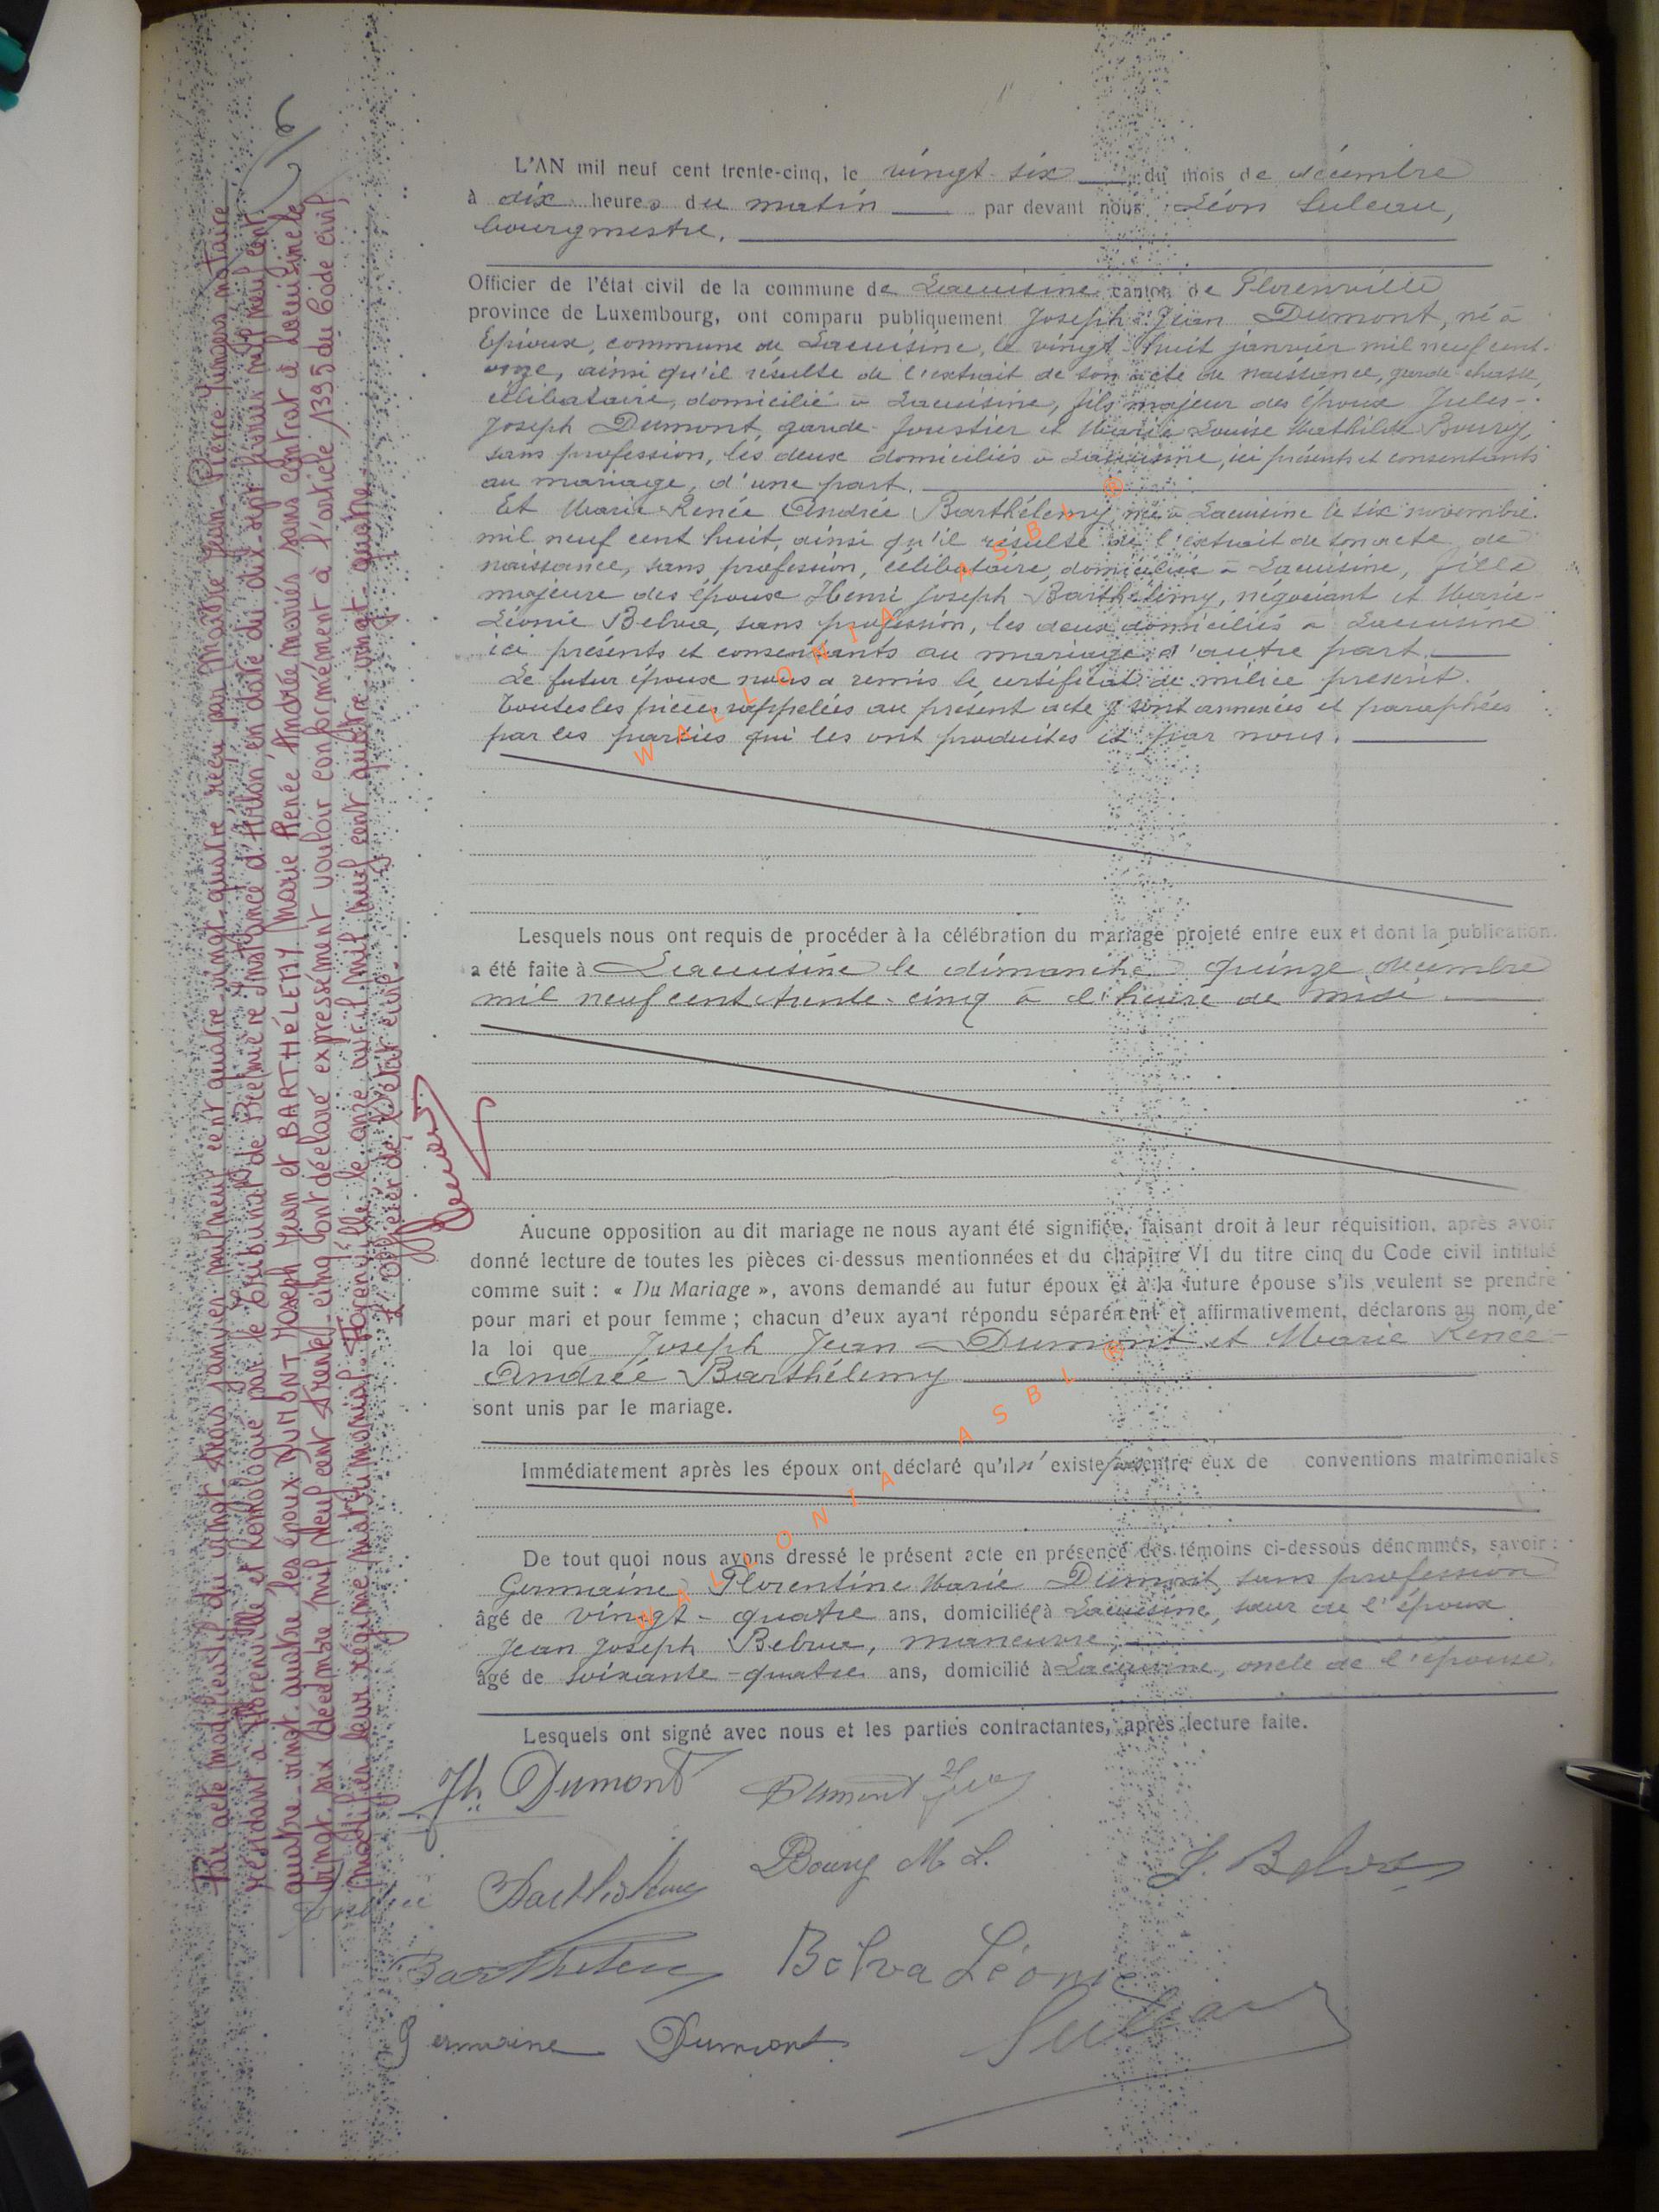 6
L'AN mil neuf cent trente-cinq, le vingt-six du mois de décembre
à dix heures du matin par devant nous Léon Suleau,
bourgmestre.
Officier de l'état civil de la commune de Lacuisine canton de Florenville
province de Luxembourg, ont comparu publiquement Joseph Jean Dumont, né à
Epioux, commune de Lacuisine, le vingt-huit janvier mil neuf cent
onze, ainsi qu'il résulte de l'extrait de son acte de naissance, garde-chasse,
célibataire, domicilié à Lacuisine, fils majeur des époux Jules-
Joseph Dumont, garde-forestier et Marie Louise Mathilde Bourg,
sans profession, les deux domiciliés à Lacuisine, ici présents et consentants
au mariage, d'une part.
Et Marie Renée Andrée Barthélemy, née à Lacuisine le six novembre
mil neuf cent huit, ainsi qu'il résulte de l'extrait de son acte de
naissance, sans profession, célibataire, domiciliée à Lacuisine, fille
majeure des époux Henri Joseph Barthélemy, négociant et Marie-
Léonie Belva, sans profession, les deux domiciliés à Lacuisine
ici présents et consentants au mariage d'autre part.
Le futur époux nous a remis le certificat de milice prescrit.
Toutes les pièces rappelées au présent acte y sont annexées et paraphées
par les parties qui les ont produites et par nous.
Lesquels nous ont requis de procéder à la célébration du mariage projeté entre eux et dont la publication
a été faite à Lacuisine le dimanche quinze décembre
mil neuf cent trente-cinq à l'heure de midi
Aucune opposition au dit mariage ne nous ayant été signifiée, faisant droit à leur réquisition, après avoir
donné lecture de toutes les pièces ci-dessus mentionnées et du chapitre VI du titre cinq du Code civil intitulé
comme suit : « Du Mariage », avons demandé au futur époux et à la future épouse s'ils veulent se prendre
pour mari et pour femme ; chacun d'eux ayant répondu séparément et affirmativement, déclarons au nom de
la loi que Joseph Jean Dumont et Marie Renée
Andrée Barthélemy
sont unis par le mariage.
Immédiatement après les époux ont déclaré qu'il n'existe pas entre eux de conventions matrimoniales
De tout quoi nous avons dressé le présent acte en présence des témoins ci-dessous dénommés, savoir :
Germaine Florentine Marie Dumont, sans profession
âgé de vingt-quatre ans, domiciliée à Lacuisine, sœur de l'époux
Jean Joseph Belva, manœuvre,
âgé de soixante-quatre ans, domicilié à Lacuisine, oncle de l'épouse.
Lesquels ont signé avec nous et les parties contractantes, après lecture faite.
Jh Dumont
Dumont
Barthélemy
Bourg M L.
J. Belva
Barthelemy
Belva Léonie
Germaine Dumont
Suleau
Par acte modificatif du vingt-trois janvier mil neuf cent quatre-vingt-quatre reçu par Maître Jean-Pierre Umgès notaire
résidant à Florenville et homologué par le Tribunal de Première Instance d'Arlon en date du dix-sept février mil neuf cent
quatre-vingt-quatre les époux DUMONT Joseph Jean et BARTHÉLEMY Marie Renée Andrée mariés sans contrat à Lacuisine le
vingt-six décembre mil neuf cent trente-cinq ont déclaré expressément vouloir conformément à l'article 1395 du Code civil
modifier leur régime matrimonial. Florenville le onze avril mil neuf cent quatre-vingt-quatre
L'Officier de l'état civil.
WALLONIA ASBL ®
WALLONIA ASBL ®